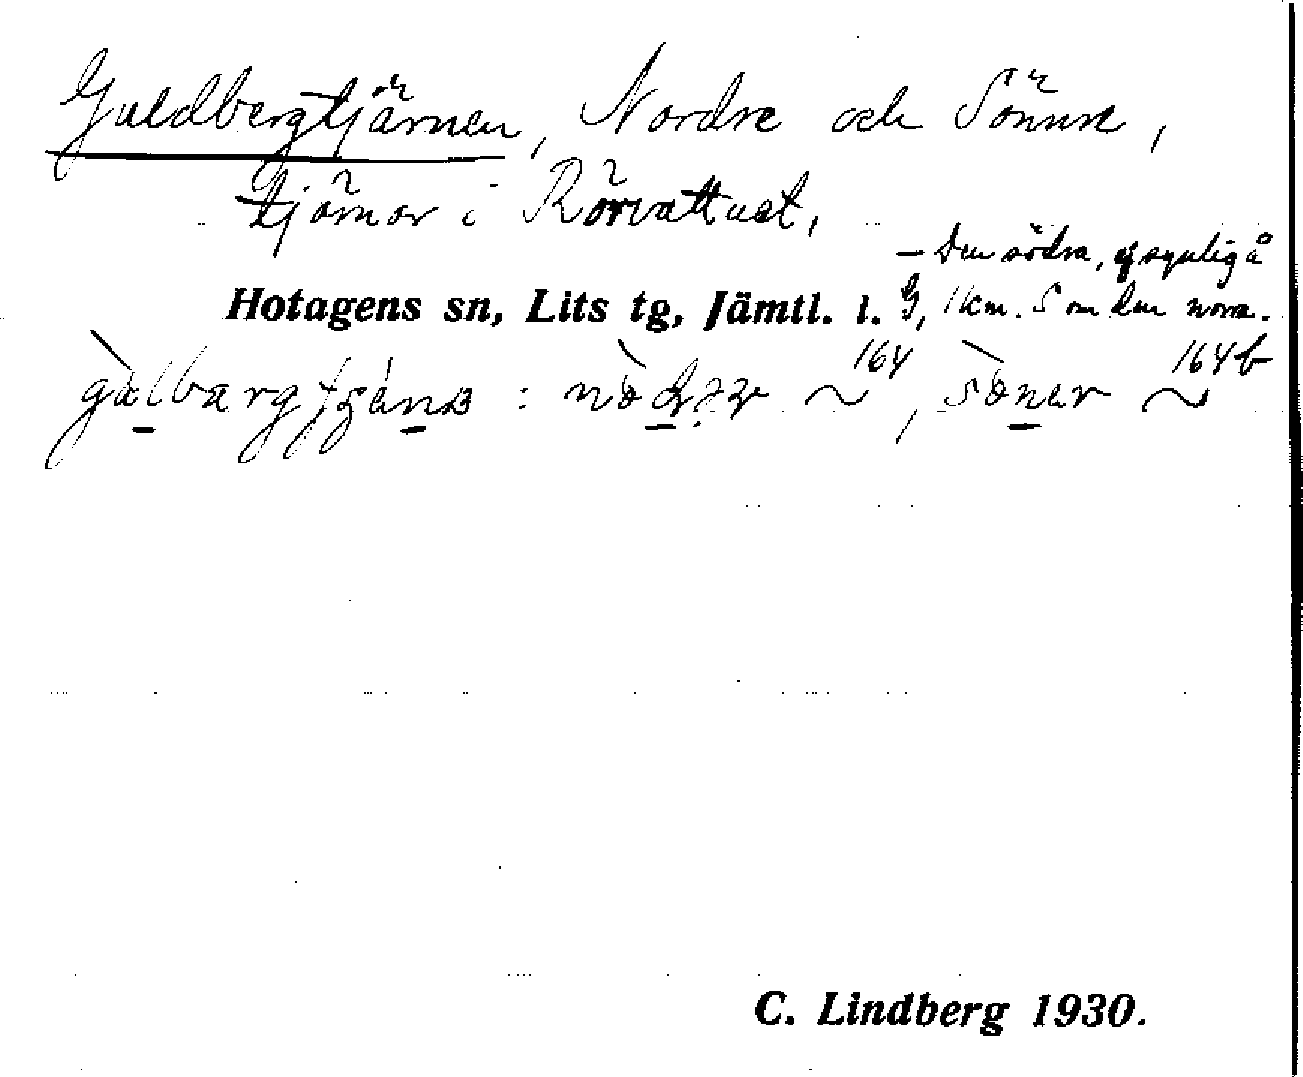 Guldbergtjärnen, Nordre och Sönnre,
tjärnar i Rörvattnet,
– Den södra, ej synlig å
Hotagens sn, Lits tg, Jämtl. l. G, 1 km. S om den norra.
164 164b
C. Lindberg 1930.